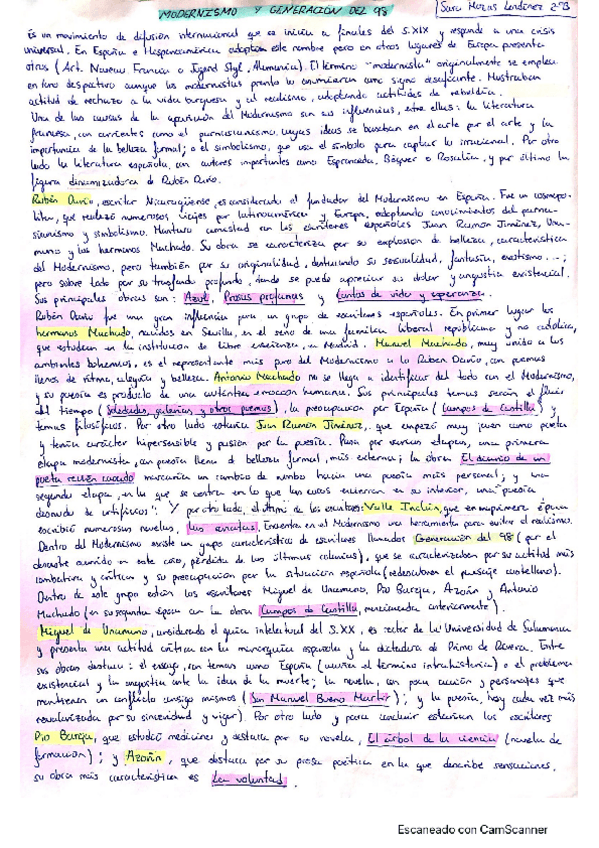 MODERNISMO Y GENERACIÓN DEL 98
Sara 2ºB
Es un movimiento de difusión internacional que se inicia a finales del S.XIX y responde a una crisis
universal. En España e Hispanoamérica adoptan este nombre pero en otros lugares de Europa presenta
otros (Art. Noveau Francia o Jugend Styl, Alemania). El término "modernista" originalmente se emplea
en tono despectivo aunque los modernistas pronto lo asumieron como signo desafiante. Mostraban
actitud de rechazo a la vida burguesa y al realismo, adoptando actitudes de rebeldía.
Una de las causas de la aparición del Modernismo son sus influencias, entre ellas: la literatura
francesa, con corrientes como el parnasianismo, cuyas ideas se basaban en el arte por el arte y la
importancia de la belleza formal; o el simbolismo, que usa el símbolo para captar lo irracional. Por otro
lado la literatura española, con autores importantes como Espronceda, Bécquer o Rosalía, y por último la
figura dinamizadora de Rubén Darío.
Rubén Darío, escritor Nicaragüense, es considerado el fundador del Modernismo en España. Fue un cosmopo-
lita, que realizó numerosos viajes por Latinoamérica y Europa, adoptando conocimientos del parna-
sianismo y simbolismo. Mantuvo amistad con los escritores españoles Juan Ramón Jiménez, Una-
muno y los hermanos Machado. Su obra se caracteriza por su explosión de belleza, característica
del Modernismo, pero también por su originalidad, destacando su sensualidad, fantasía, exotismo...;
pero sobre todo por su trasfondo profundo, donde se puede apreciar su dolor y angustia existencial.
Sus principales obras son: Azul, Prosas profanas y Cantos de vida y esperanza.
Rubén Darío fue una gran influencia para un grupo de escritores españoles. En primer lugar los
hermanos Machado, nacidos en Sevilla, en el seno de una familia liberal republicana y no católica,
que estudian en la institución de libre enseñanza, en Madrid. Manuel Machado, muy unido a los
ambientes bohemios, es el representante más puro del Modernismo a lo Rubén Darío, con poemas
llenos de ritmo, alegría y belleza. Antonio Machado no se llega a identificar del todo con el Modernismo,
y su poesía es producto de una auténtica emoción humana. Sus principales temas serán el fluir
del tiempo (Soledades, galerías, y otros poemas), la preocupación por España (Campos de Castilla) y
temas filosóficos. Por otro lado estaría Juan Ramón Jiménez, que empezó muy joven como poeta
y tenía carácter hipersensible y pasión por la poesía. Pasa por varias etapas, una primera
etapa modernista, con poesía llena de belleza formal, más externa; la obra El diario de un
poeta recién casado marcaría un cambio de rumbo hacia una poesía más personal; y una
segunda etapa, en la que se centra en lo que las cosas encierran en su interior, una "poesía
desnuda de artificios". Y por otro lado, el último de los escritores: Valle Inclán, que en su primera época
escribió numerosas novelas, Las sonatas. Encuentra en el Modernismo una herramienta para evitar el realismo.
Dentro del Modernismo existe un grupo característico de escritores llamados Generación del 98 (por el
desastre ocurrido en este caso, pérdida de las últimas colonias), que se caracterizaban por su actitud más
combativa y crítica y su preocupación por la situación española (redescubren el paisaje castellano).
Dentro de este grupo están los escritores Miguel de Unamuno, Pío Baroja, Azorín y Antonio
Machado (en su segunda época con la obra Campos de Castilla, mencionada anteriormente).
Miguel de Unamuno, considerado el guía intelectual del S.XX, es rector de la Universidad de Salamanca
y presenta una actitud crítica con la monarquía española y la dictadura de Primo de Rivera. Entre
sus obras destaca: el ensayo, con temas como España (acuña el término intrahistoria) o el problema
existencial y la angustia ante la idea de la muerte; la novela, con poca acción y personajes que
mantienen un conflicto consigo mismos (San Manuel Bueno Martir); y la poesía, hoy cada vez más
revalorizada por su sinceridad y vigor). Por otro lado y para concluir estarían los escritores
Pío Baroja, que estudió medicina y destaca por su novela, El árbol de la ciencia (novela de
formación); y Azorín, que destaca por su prosa poética en la que describe sensaciones,
su obra más característica es La voluntad.
Escaneado con CamScanner